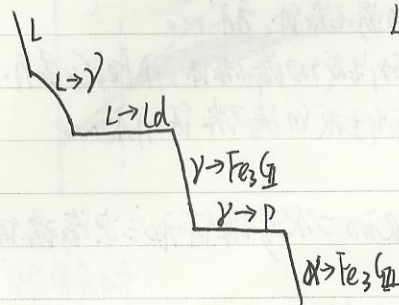 L
L
L→γ
L→Ld
γ→Fe₃CⅡ
γ→P
α→Fe₃CⅢ